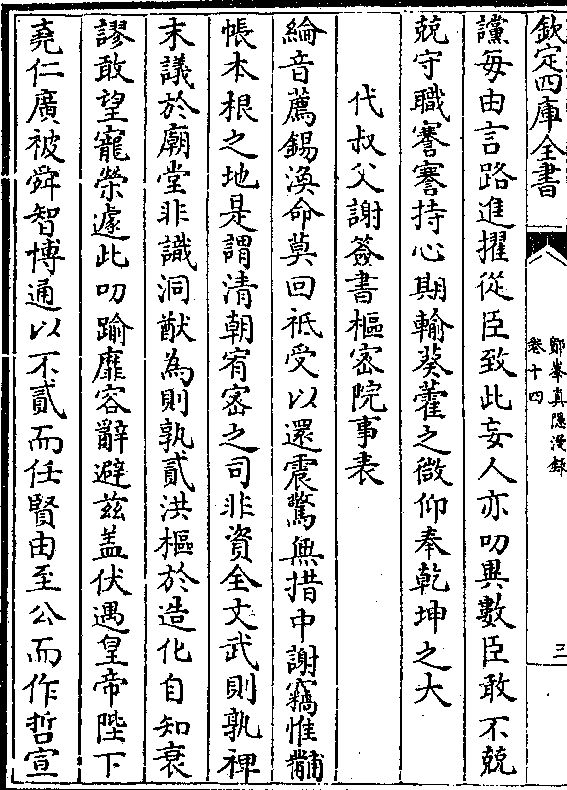 欽定四庫全書
鄮峯真隱漫録
卷十四
三
讜每由言路進擢從臣致此妄人亦叨異數臣敢不兢
兢守職謇謇持心期輸葵藿之微仰奉乾坤之大
代叔父謝簽書樞密院事表
綸音薦錫渙命莫回祗受以還震驚無措中謝竊惟黼
帳本根之地是謂清朝宥密之司非資全文武則孰裨
末議於廟堂非識洞猷為則孰貳洪樞於造化自知衰
謬敢望寵榮遽此叨踰靡容辭避兹盖伏遇皇帝陛下
堯仁廣被舜智博通以不貳而任賢由至公而作哲宣